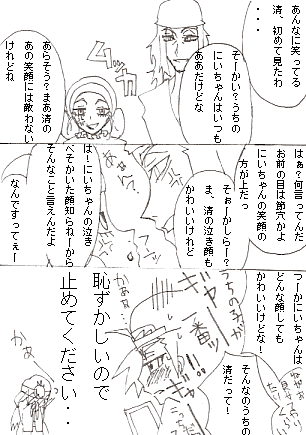 あんなに笑ってる
清、初めて見たわ
・・・
そーかい?うちの
にいちゃんはいつも
ああだけどな
あらそう?まあ清の
あの笑顔には敵わない
けれどね
はぁ?何言ってんだ
お前の目は節穴かよ
にいちゃんの笑顔の
方が上だっ
そぉーかしらー?
ま、清の泣き顔も
かわいいけれど
は!にいちゃんの泣き
べそかいた顔知らねーから
そんなこと言えんだよ
なんですってぇー
つーかにいちゃんは
どんな顔しても
かわいいけどな!
ギャー
うちの子が
一番ッ!
そんなのうちの
清だって!
かぁぁ
恥ずかしいので
止めてください・・
かぁ